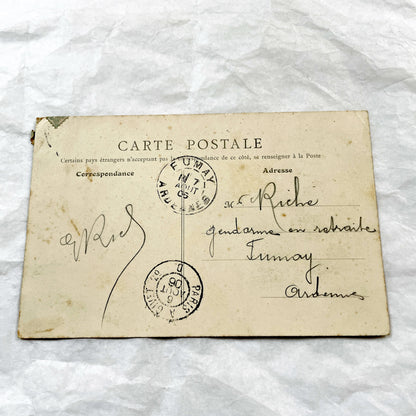 CARTE POSTALE
Certains pays étrangers n'acceptant pas la correspondance de ce côté, se renseigner à la Poste
Correspondance
Adresse
FUMAY
7
AOUT
05
ARDENNES
Mr Riché
gendarme en retraite
Fumay
Ardennes
PARIS A
6
AOUT